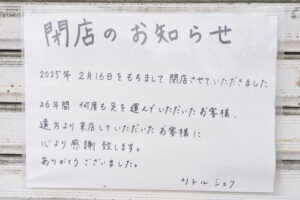 閉店のお知らせ
2025年 2月16日をもちまして 閉店させていただきました
26年間 何度も足を運んでいただいたお客様、
遠方より来店していただいたお客様に
心より感謝致します。
ありがとうございました。
リトル シェフ